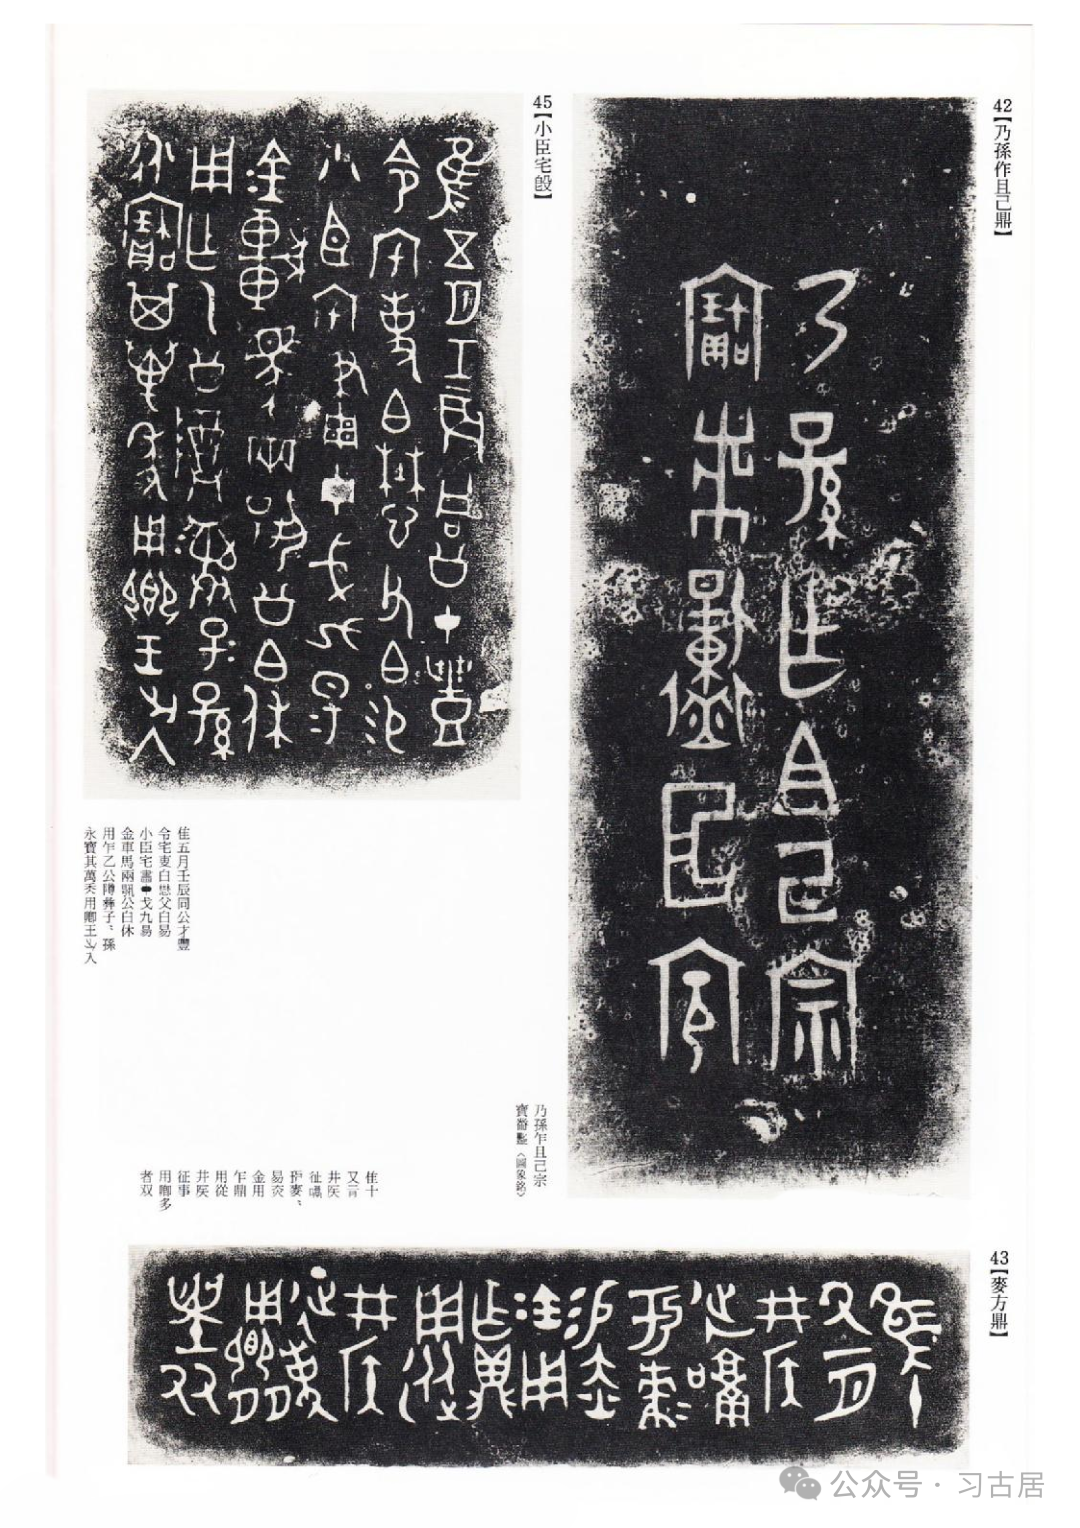 42【乃孫作且己鼎】
乃孫作且己宗
寶黹 〈圖象銘〉
45【小臣宅𣪘】
隹五月壬辰同公才豐
令宅事白懋父白易
小臣宅畫 戈九易
金車馬兩 公白休
用乍乙公 彝子〻孫
永寶其萬年用鄉王 入
43【麥方鼎】
隹十
又一月
井侯
征
于麥〻
易赤
金用
乍鼎
用從
井侯
征事
用鄉多
者双
公众号・习古居